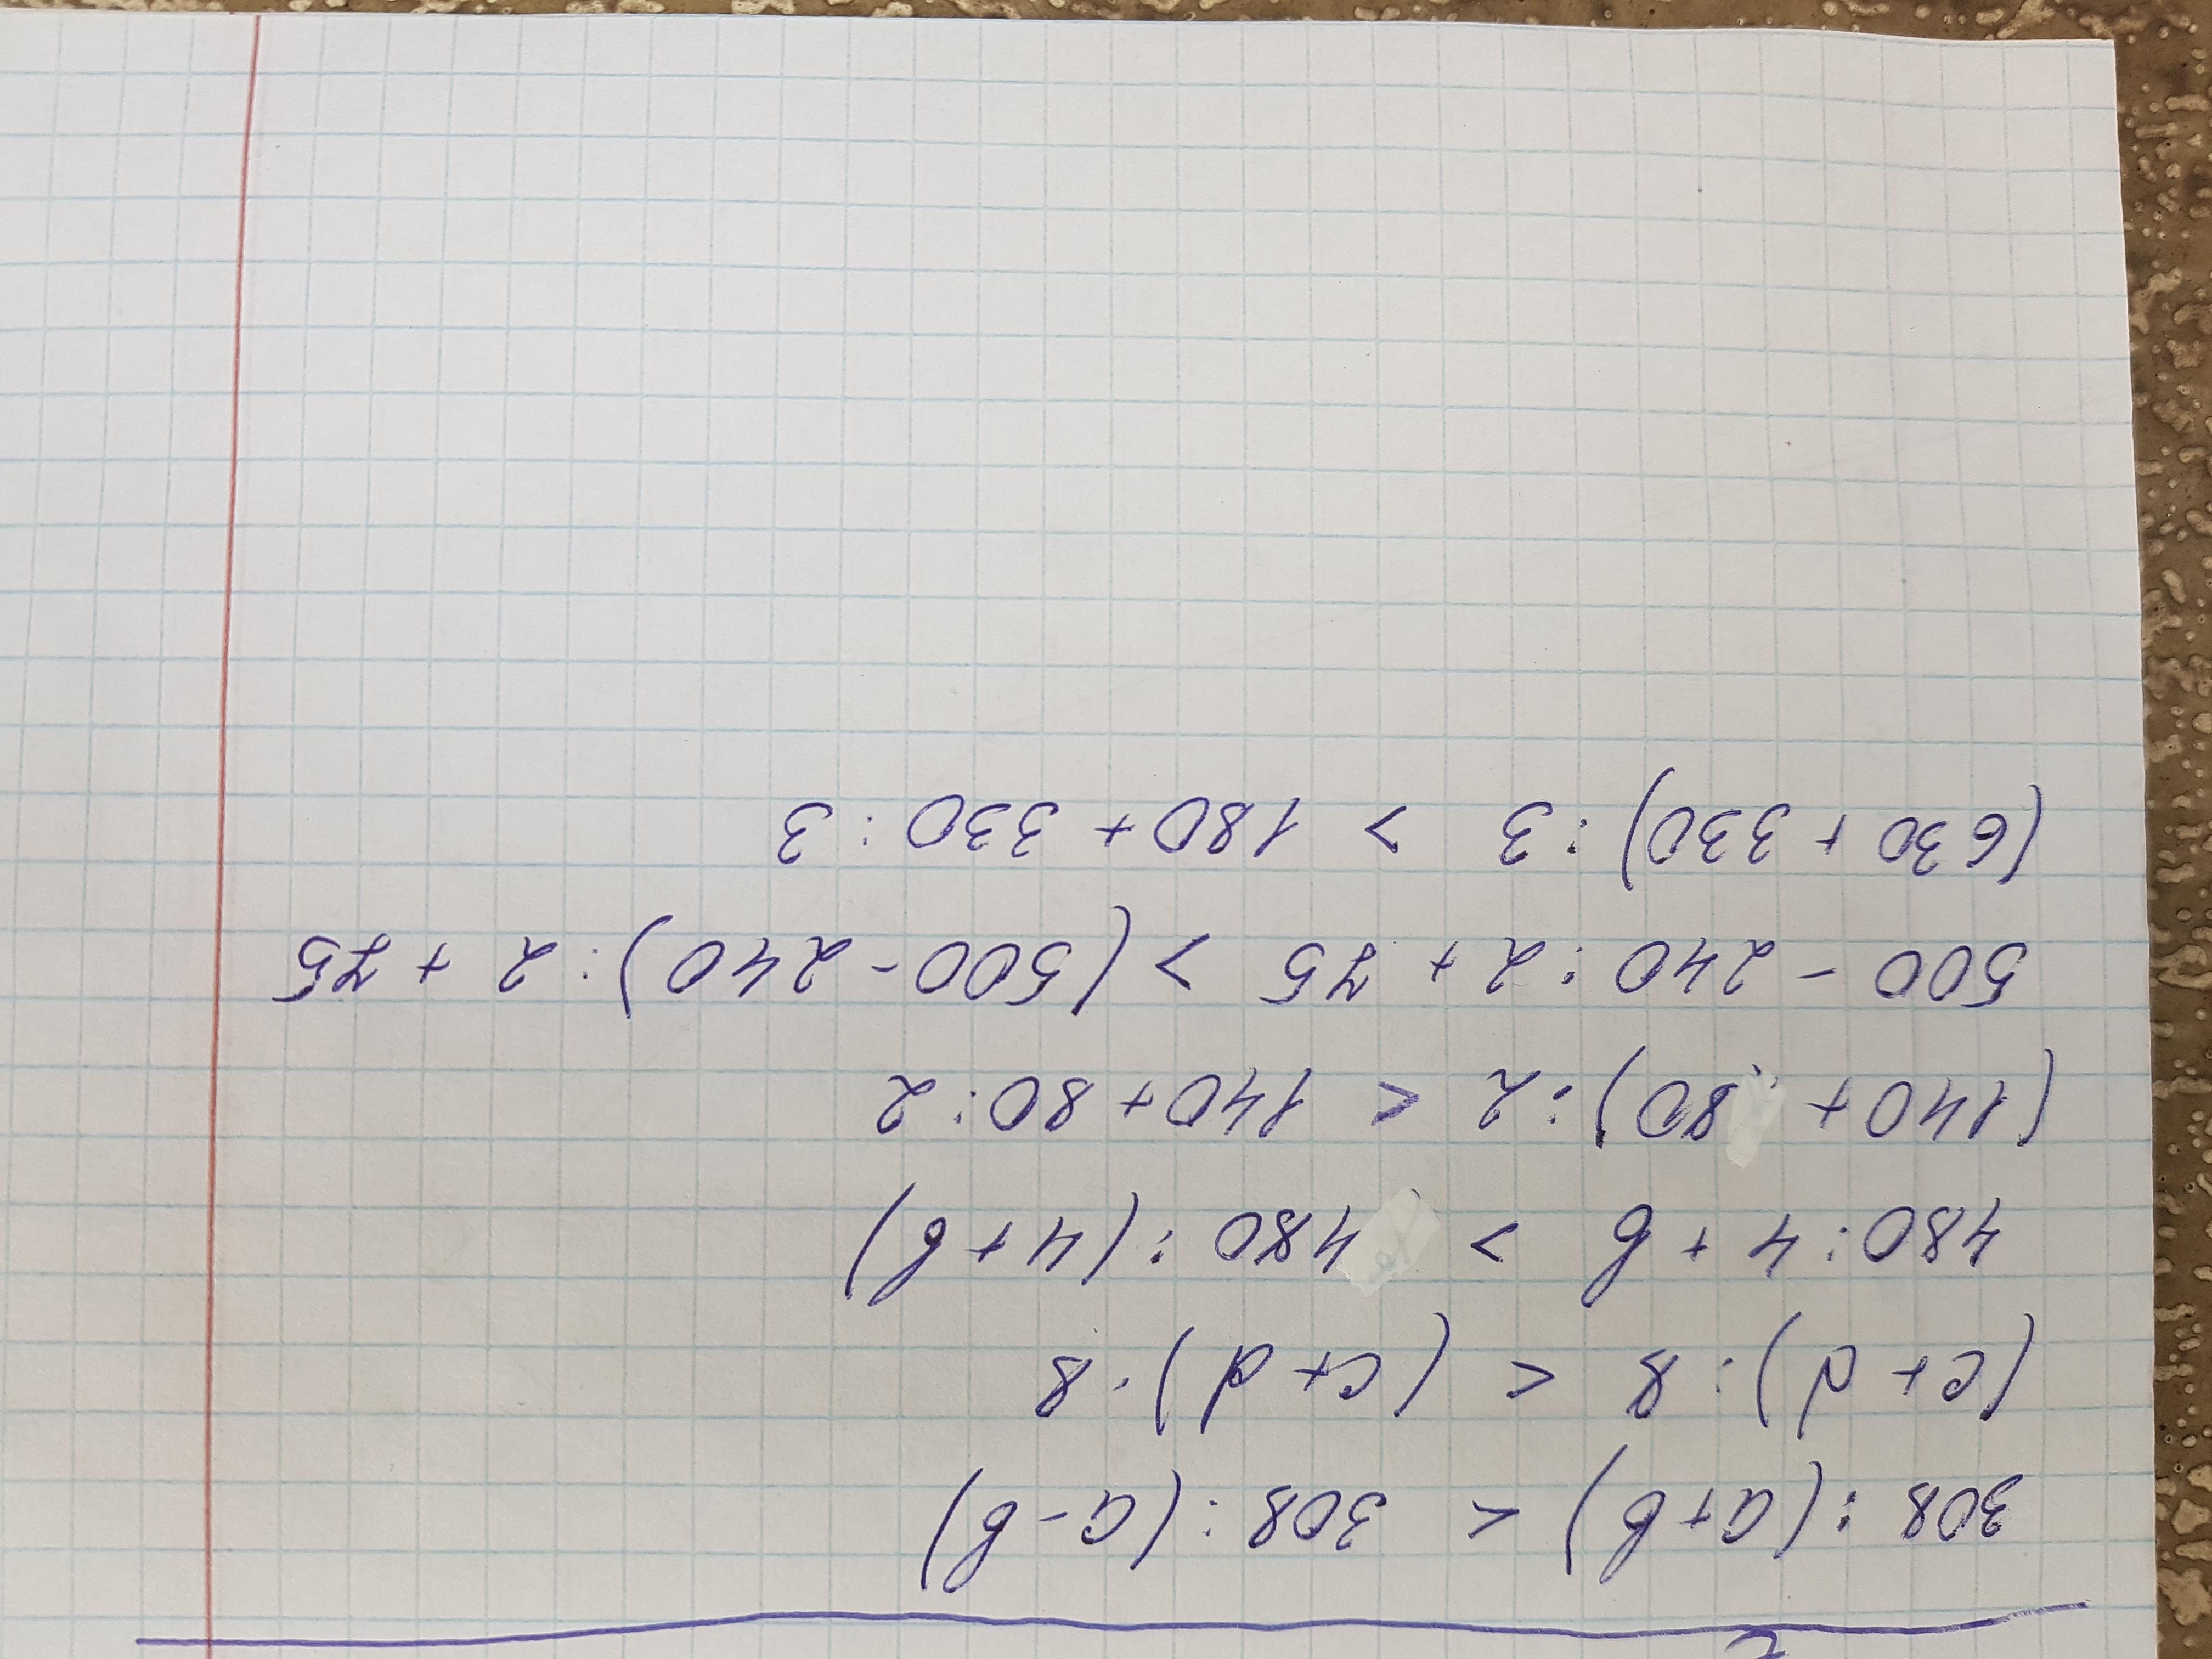 308 : (a+b) < 308 : (a-b)
(c+d) : 8 < (c+d) · 8
480 : 4 + b > 480 : (4+b)
(140+ 80) : 2 < 140+80 : 2
500 - 240 : 2 + 75 > (500-240) : 2 + 75
(630 + 330) : 3 > 180 + 330 : 3